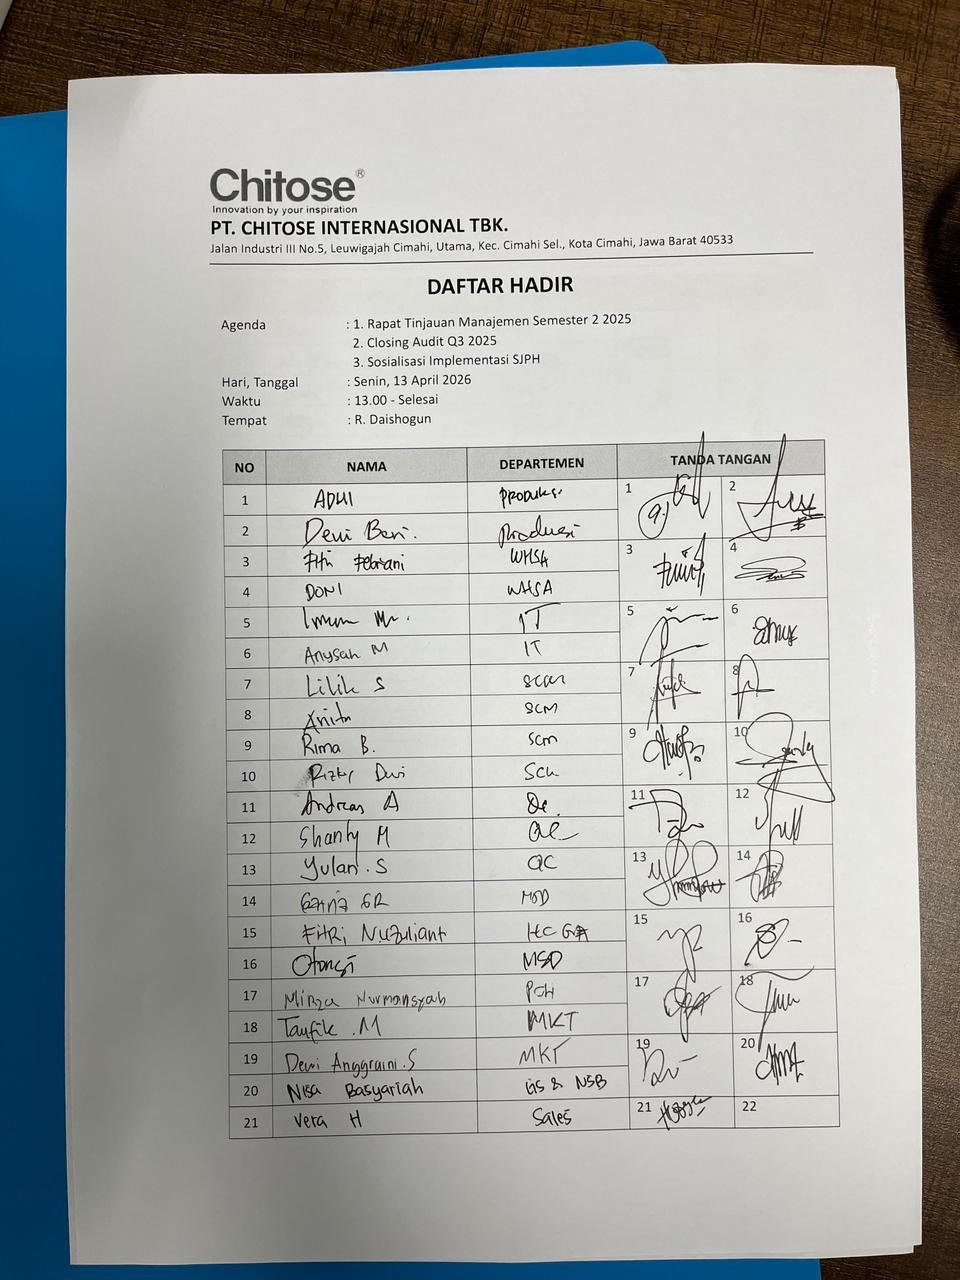 Chitose®
Innovation by your inspiration
PT. CHITOSE INTERNASIONAL TBK.
Jalan Industri III No.5, Leuwigajah Cimahi, Utama, Kec. Cimahi Sel., Kota Cimahi, Jawa Barat 40533
DAFTAR HADIR
Agenda : 1. Rapat Tinjauan Manajemen Semester 2 2025
2. Closing Audit Q3 2025
3. Sosialisasi Implementasi SJPH
Hari, Tanggal : Senin, 13 April 2026
Waktu : 13.00 - Selesai
Tempat : R. Daishogun
NO NAMA DEPARTEMEN TANDA TANGAN
1 Produksi 1 2
2 Produksi
3 Fitri Febriani WHSA 3 4
4 DONI WHSA
5 IT 5 6
6 Anysah M IT
7 Lilik S SCM 7 8
8 Anita SCM
9 Rima B. SCM 9 10
10 Rizky
11 Andreas A 11 12
12 Shanty M QC
13 Yulan.S QC 13 14
14
15 FITRI Nuzuliant HC GA 15 16
16 MSD
17 Mirza Nurmansyah 17 18
18 Taufik .M MKT
19 Dewi Anggraini.S MKT 19 20
20 Nisa Basyariah GS & NSB
21 Vera H Sales 21 22